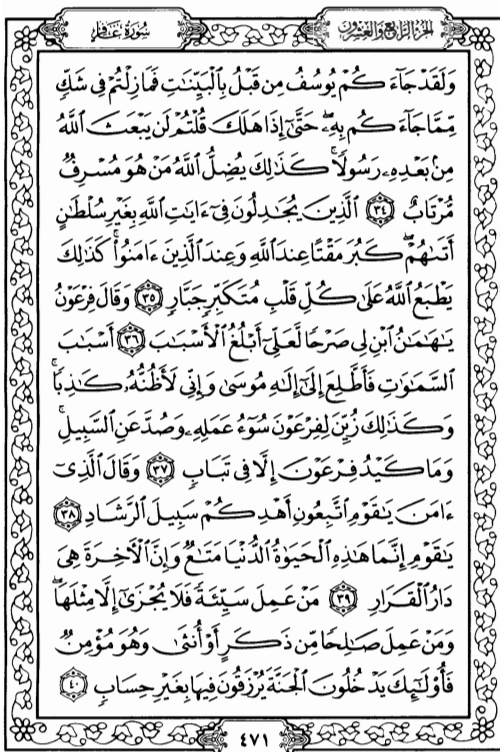 سُورَةُ غَافِرٍ
الجُزْءُ الرَّابِعُ وَالعِشْرُونَ
وَلَقَدْ جَآءَكُمْ يُوسُفُ مِن قَبْلُ بِالْبَيِّنَٰتِ فَمَا زِلْتُمْ فِى شَكٍّ
مِّمَّا جَآءَكُم بِهِۦۖ حَتَّىٰٓ إِذَا هَلَكَ قُلْتُمْ لَن يَبْعَثَ اللَّهُ
مِنۢ بَعْدِهِۦ رَسُولًاۚ كَذَٰلِكَ يُضِلُّ اللَّهُ مَنْ هُوَ مُسْرِفٌ
مُّرْتَابٌ ٣٤ الَّذِينَ يُجَٰدِلُونَ فِىٓ ءَايَٰتِ اللَّهِ بِغَيْرِ سُلْطَٰنٍ
أَتَىٰهُمْۖ كَبُرَ مَقْتًا عِندَ اللَّهِ وَعِندَ الَّذِينَ ءَامَنُوا۟ۚ كَذَٰلِكَ
يَطْبَعُ اللَّهُ عَلَىٰ كُلِّ قَلْبِ مُتَكَبِّرٍ جَبَّارٍ ٣٥ وَقَالَ فِرْعَوْنُ
يَٰهَٰمَٰنُ ابْنِ لِى صَرْحًا لَّعَلِّىٓ أَبْلُغُ الْأَسْبَٰبَ ٣٦ أَسْبَٰبَ
السَّمَٰوَٰتِ فَأَطَّلِعَ إِلَىٰٓ إِلَٰهِ مُوسَىٰ وَإِنِّى لَأَظُنُّهُۥ كَٰذِبًاۚ
وَكَذَٰلِكَ زُيِّنَ لِفِرْعَوْنَ سُوٓءُ عَمَلِهِۦ وَصُدَّ عَنِ السَّبِيلِۚ
وَمَا كَيْدُ فِرْعَوْنَ إِلَّا فِى تَبَابٍ ٣٧ وَقَالَ الَّذِىٓ
ءَامَنَ يَٰقَوْمِ اتَّبِعُونِ أَهْدِكُمْ سَبِيلَ الرَّشَادِ ٣٨
يَٰقَوْمِ إِنَّمَا هَٰذِهِ الْحَيَوٰةُ الدُّنْيَا مَتَٰعٌ وَإِنَّ الْءَاخِرَةَ هِىَ
دَارُ الْقَرَارِ ٣٩ مَنْ عَمِلَ سَيِّئَةً فَلَا يُجْزَىٰٓ إِلَّا مِثْلَهَاۖ
وَمَنْ عَمِلَ صَٰلِحًا مِّن ذَكَرٍ أَوْ أُنثَىٰ وَهُوَ مُؤْمِنٌ
فَأُو۟لَٰٓئِكَ يَدْخُلُونَ الْجَنَّةَ يُرْزَقُونَ فِيهَا بِغَيْرِ حِسَابٍ ٤٠
٤٧١